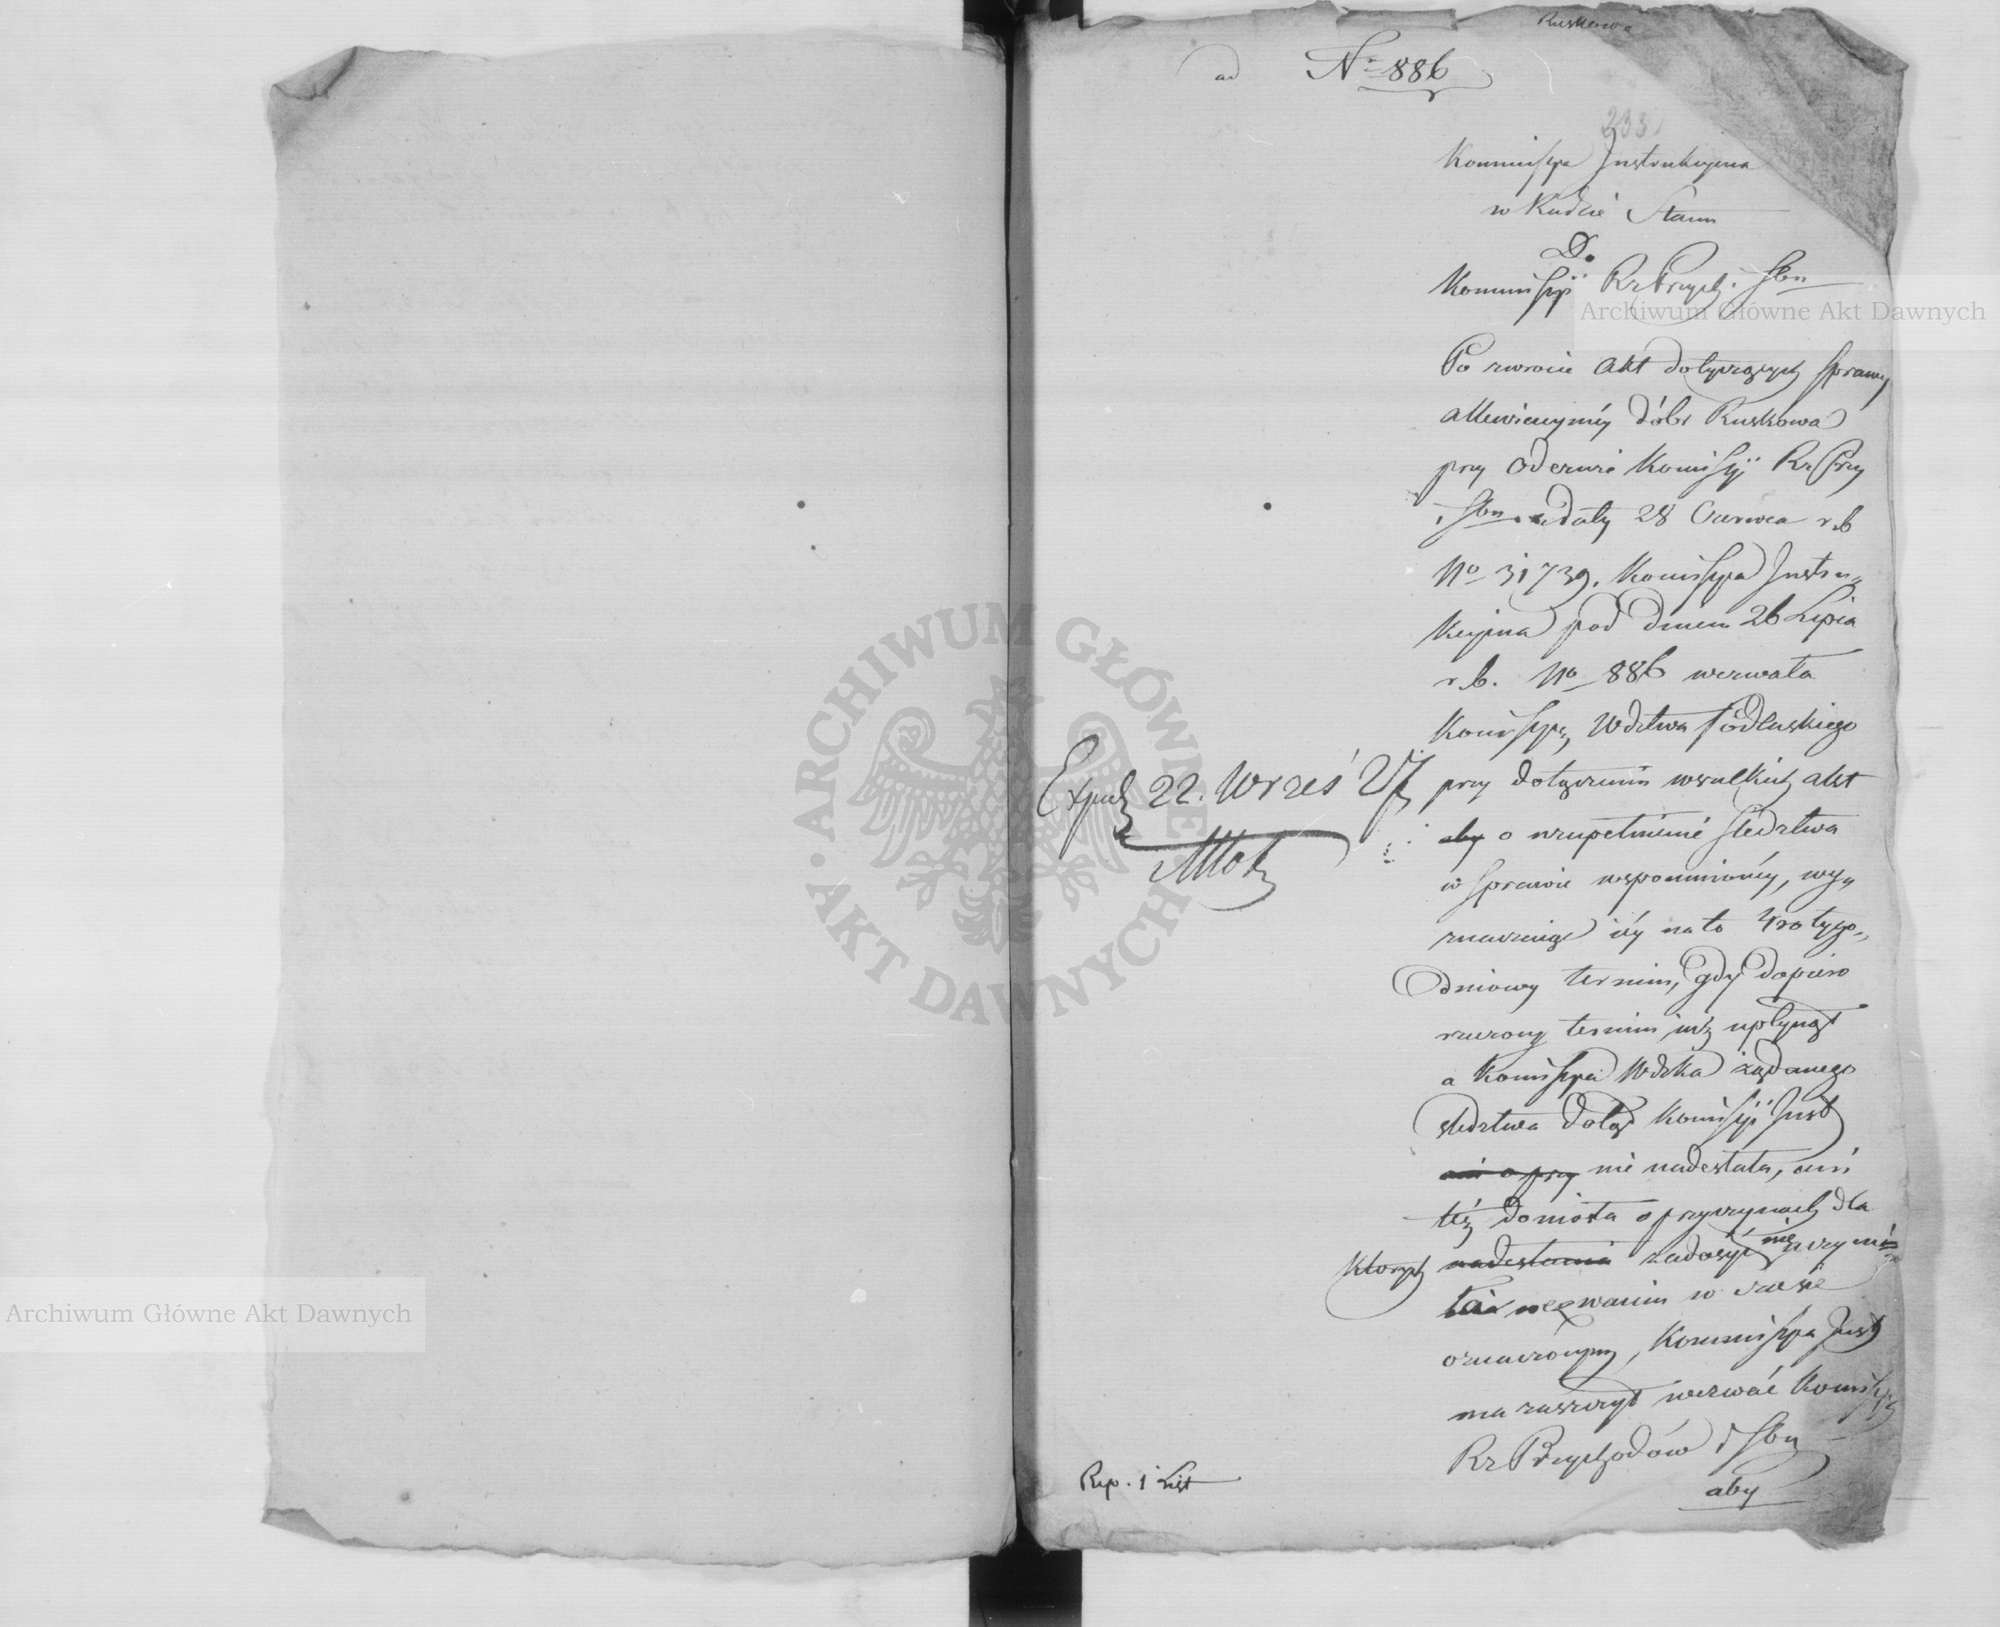 Ruskowa
ad № 886
233
Kommissya Instrukcyina
w Radzie Stanu
Do
Kommissyi Rz Przych. i Sbu
Archiwum Główne Akt Dawnych
Po zwrocie akt dotyczących sprawy
allewiacyinéy dóbr Ruskowa
przy Odezwie Komissyi Rz Przy
i Sbu z daty 28 Czerwca r.b
No 31739. Komissya Instru„
kcyina pod dniem 26 Lipca
r.b. No 886 wezwała
Komissyą Wdztwa Podlaskiego
przy dołączeniu wszelkich akt
aby o uzupełnienie śledztwa
w sprawie wspomnionéy, wy„
znaczaiąc iéy na to 4ro tygo„
dniowy termin, gdy dopiero
rzeczony termin iuż upłynął
a Komissya Wdzka żądanego
śledztwa dotąd Komissyi Inst
ani o przy nie nadesłała, ani
też doniosła o przyczynach dla
których nadesłania zadosyć nie uczyni„
ła wezwaniu w czasie
oznaczonym, Kommissya Inst
ma zaszczyt wezwać Komissyą
Rz Przychodów i Sbu
aby
Exped 22. Wrześ 27
Rep. 1 List
ARCHIWUM GŁÓWNE
AKT DAWNYCH
Archiwum Główne Akt Dawnych